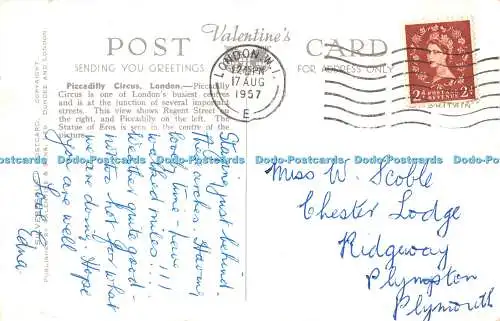 POST Valentine's CARD
SENDING YOU GREETINGS FOR ADDRESS ONLY
LONDON W.
12 PM
17 AUG
1957
E
2D 2D
POSTAGE REVENUE
Piccadilly Circus, London.—Piccadilly
Circus is one of London's busiest centres
and is at the junction of several important
streets. This view shows Regent Street on
the right, and Piccadilly on the left. The
Statue of Eros is seen in the centre of the
picture.
Staying just behind
the arches. Having
lovely time - have
walked miles!!!
Weather quite good -
not too hot for what
we are doing. Hope
you are well
Love
Edna.
Miss W. Scoble
Chester Lodge
Ridgeway
Plympton
Plymouth
Postcards www.Postcards www.Postcards www.Postcards
DUNDEE AND LONDON
COPYRIGHT